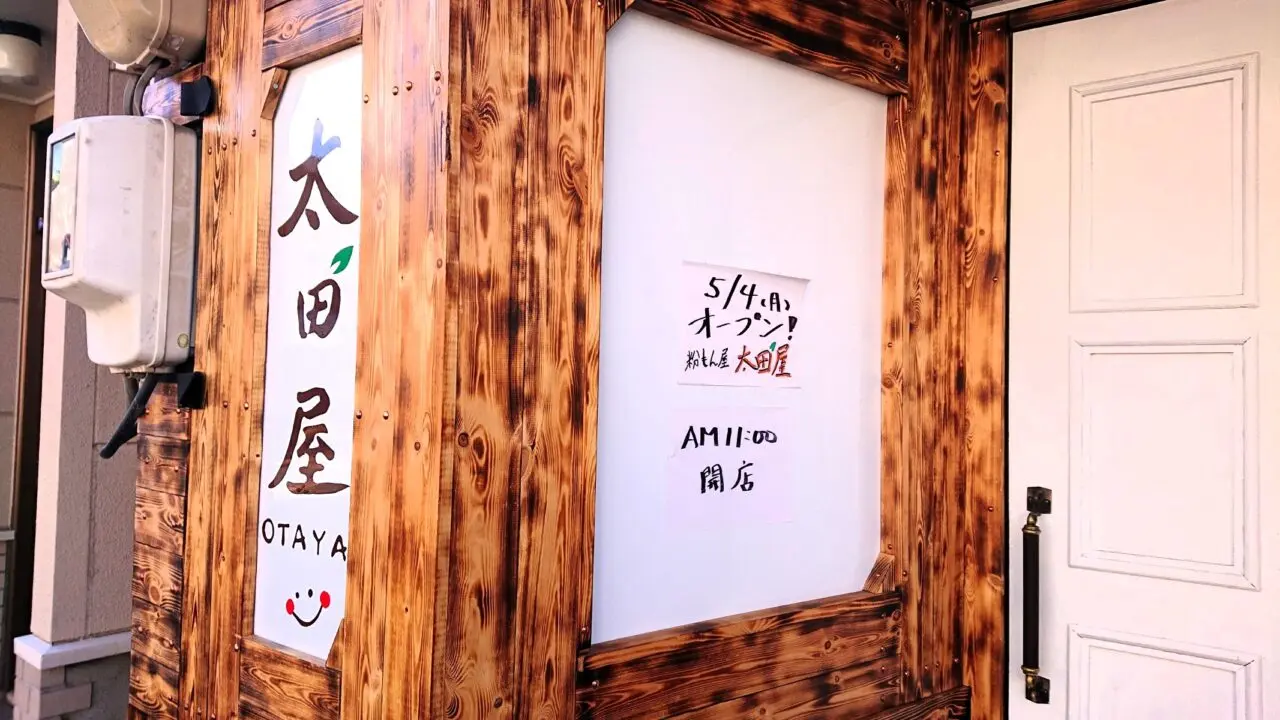 太田屋
OTAYA
5/4(月)
オープン!
粉もん屋 太田屋
AM 11:00
開店